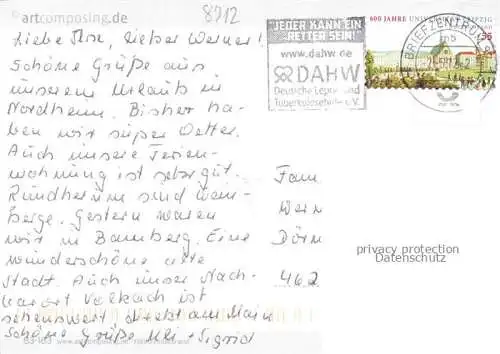 artcomposing.de
8912
Liebe Ilse, lieber Werner!
schöne Grüße aus
unserem Urlaub in
Nordheim. Bisher ha-
ben wir super Wetter.
Auch unsere Ferien-
wohnung ist sehr gut.
Rundherum sind Wein-
berge. Gestern waren
wir in Bamberg. Eine
wunderschöne alte
Stadt. Auch unser Nach-
barort Volkach ist
sehenswert direkt am Main
Schöne Grüße Uli + Sigrid
"JEDER KANN EIN
RETTER SEIN!"
www.dahw.de
DAHW
Deutsche Lepra- und
Tuberkulosehilfe e.V.
600 JAHRE UNIVERSITÄT LEIPZIG
BRIEFZENTRUM
Fam
Wern
Dörn
462
privacy protection
Datenschutz